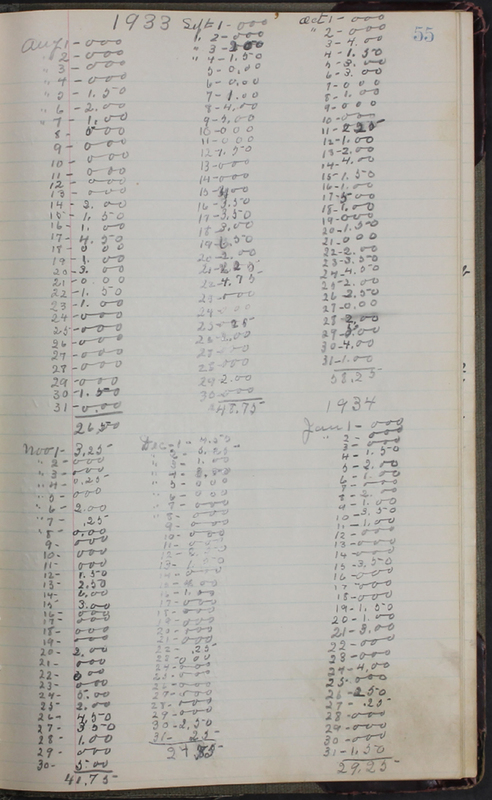 1933
55
Aug 1 - 000
" 2 - 000
" 3 - 000
" 4 - 000
" 5 - 1.50
" 6 - 2.00
" 7 - 1.00
8 - 5.00
9 - 000
10 - 000
11 - 000
12 - 000
13 - 000
14 - 3.00
15 - 1.50
16 - 1.00
17 - 4.50
18 - 000
19 - 1.00
20 - 3.00
21 - 0.00
22 - 1.50
23 - 1.00
24 - 000
25 - 000
26 - 000
27 - 000
28 - 000
29 - 000
30 - 1.50
31 - 0.00
26.50
Sept 1 - 000
" 2 - 000
" 3 - 200
" 4 - 1.50
5 - 0.00
6 - 0.00
7 - 1.00
8 - 4.00
9 - 5.00
10 - 000
11 - 000
12 - 1.50
13 - 000
14 - 000
16 - 3.50
17 - 3.50
18 - 3.00
20 - 2.00
21 - 2.25
22 - 4.75
23 - 000
24 - 000
25 - 25
28 - 000
29 - 2.00
30 - 000
48.75
Oct 1 - 000
" 2 - 000
3 - 4.00
4 - 1.50
5 - 3.00
6 - 3.00
7 - 000
8 - 1.00
9 - 000
10 - 000
11 - 225
12 - 1.00
13 - 2.00
14 - 4.00
15 - 1.50
16 - 1.00
17 - 5.00
18 - 1.00
19 - 000
20 - 1.50
21 - 000
22 - 2.00
23 - 3.50
24 - 4.50
25 - 2.00
26 - 2.50
27 - 0.00
28 - 2.00
29 - 5.00
30 - 4.00
31 - 1.00
58.25
Nov 1 - 3.25
" 2 - 000
" 3 - 000
" 4 - 0.25
" 5 - 000
" 6 - 2.00
" 7 - .25
" 8 - 0.00
9 - 000
10 - 000
11 - 000
12 - 1.50
13 - 2.50
15 - 3.00
16 - 000
17 - 000
18 - 000
19 - 000
20 - 2.00
21 - 000
22 - 000
23 - 000
24 - 5.00
25 - 2.00
26 - 4.50
27 - 3.50
28 - 1.00
29 - 000
30 - 5.00
41.75
Dec - 1 - 4.50
5 - 000
6 - 000
7 - 000
8 - 000
9 - 000
10 - 000
11 - 000
16 - 1.00
17 - 000
18 - 000
19 - 000
20 - 000
21 - 000
22 - .25
23 - 000
24 - 000
25 - 000
26 - 000
27 - 000
28 - 000
29 - 000
30 - 2.50
31 - 25
1934
Jan 1 - 000
" 2 - 000
3 - 000
4 - 1.50
5 - 2.00
6 - 1.00
7 - 000
9 - 1.00
10 - 3.50
11 - 1.00
12 - 000
13 - 000
14 - 000
15 - 3.50
16 - 000
17 - 000
18 - 000
19 - 1.50
20 - 1.00
21 - 3.00
22 - 000
23 - 000
24 - 4.00
25 - 000
26 - 250
27 - .25
28 - 000
29 - 000
30 - 000
31 - 1.50
29.25